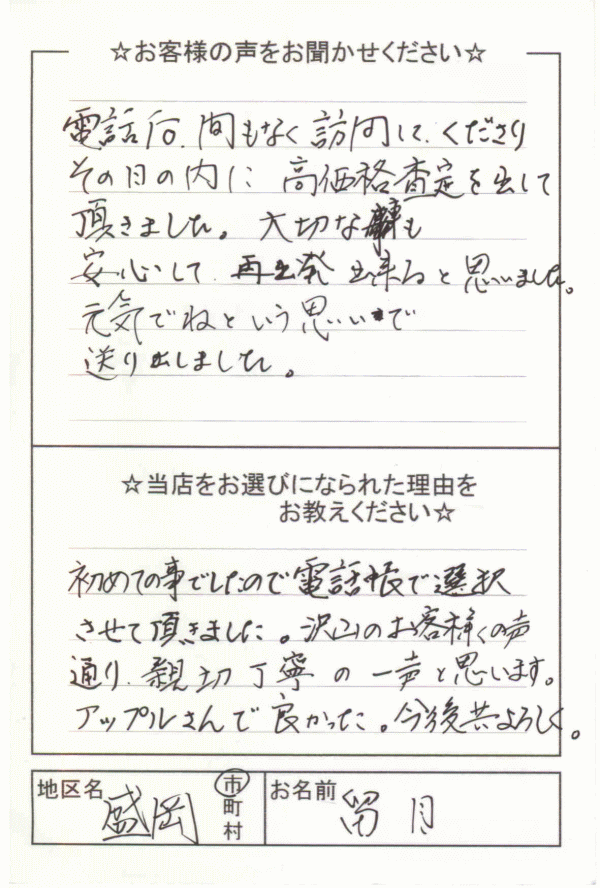 ☆お客様の声をお聞かせください☆
電話后、間もなく訪問して、くださり
その日の内に 高価格査定を出して
頂きました。大切な車も
安心して、再出発出来ると思いました。
元気でねという思いで
送り出しました。
☆当店をお選びになられた理由を
お教えください☆
初めての事でしたので電話帳で選択
させて頂きました。沢山のお客様の声
通り、親切丁寧の一声と思います。
アップルさんで良かった。今後共よろしく。
地区名 盛岡 市
町
村
お名前 留目